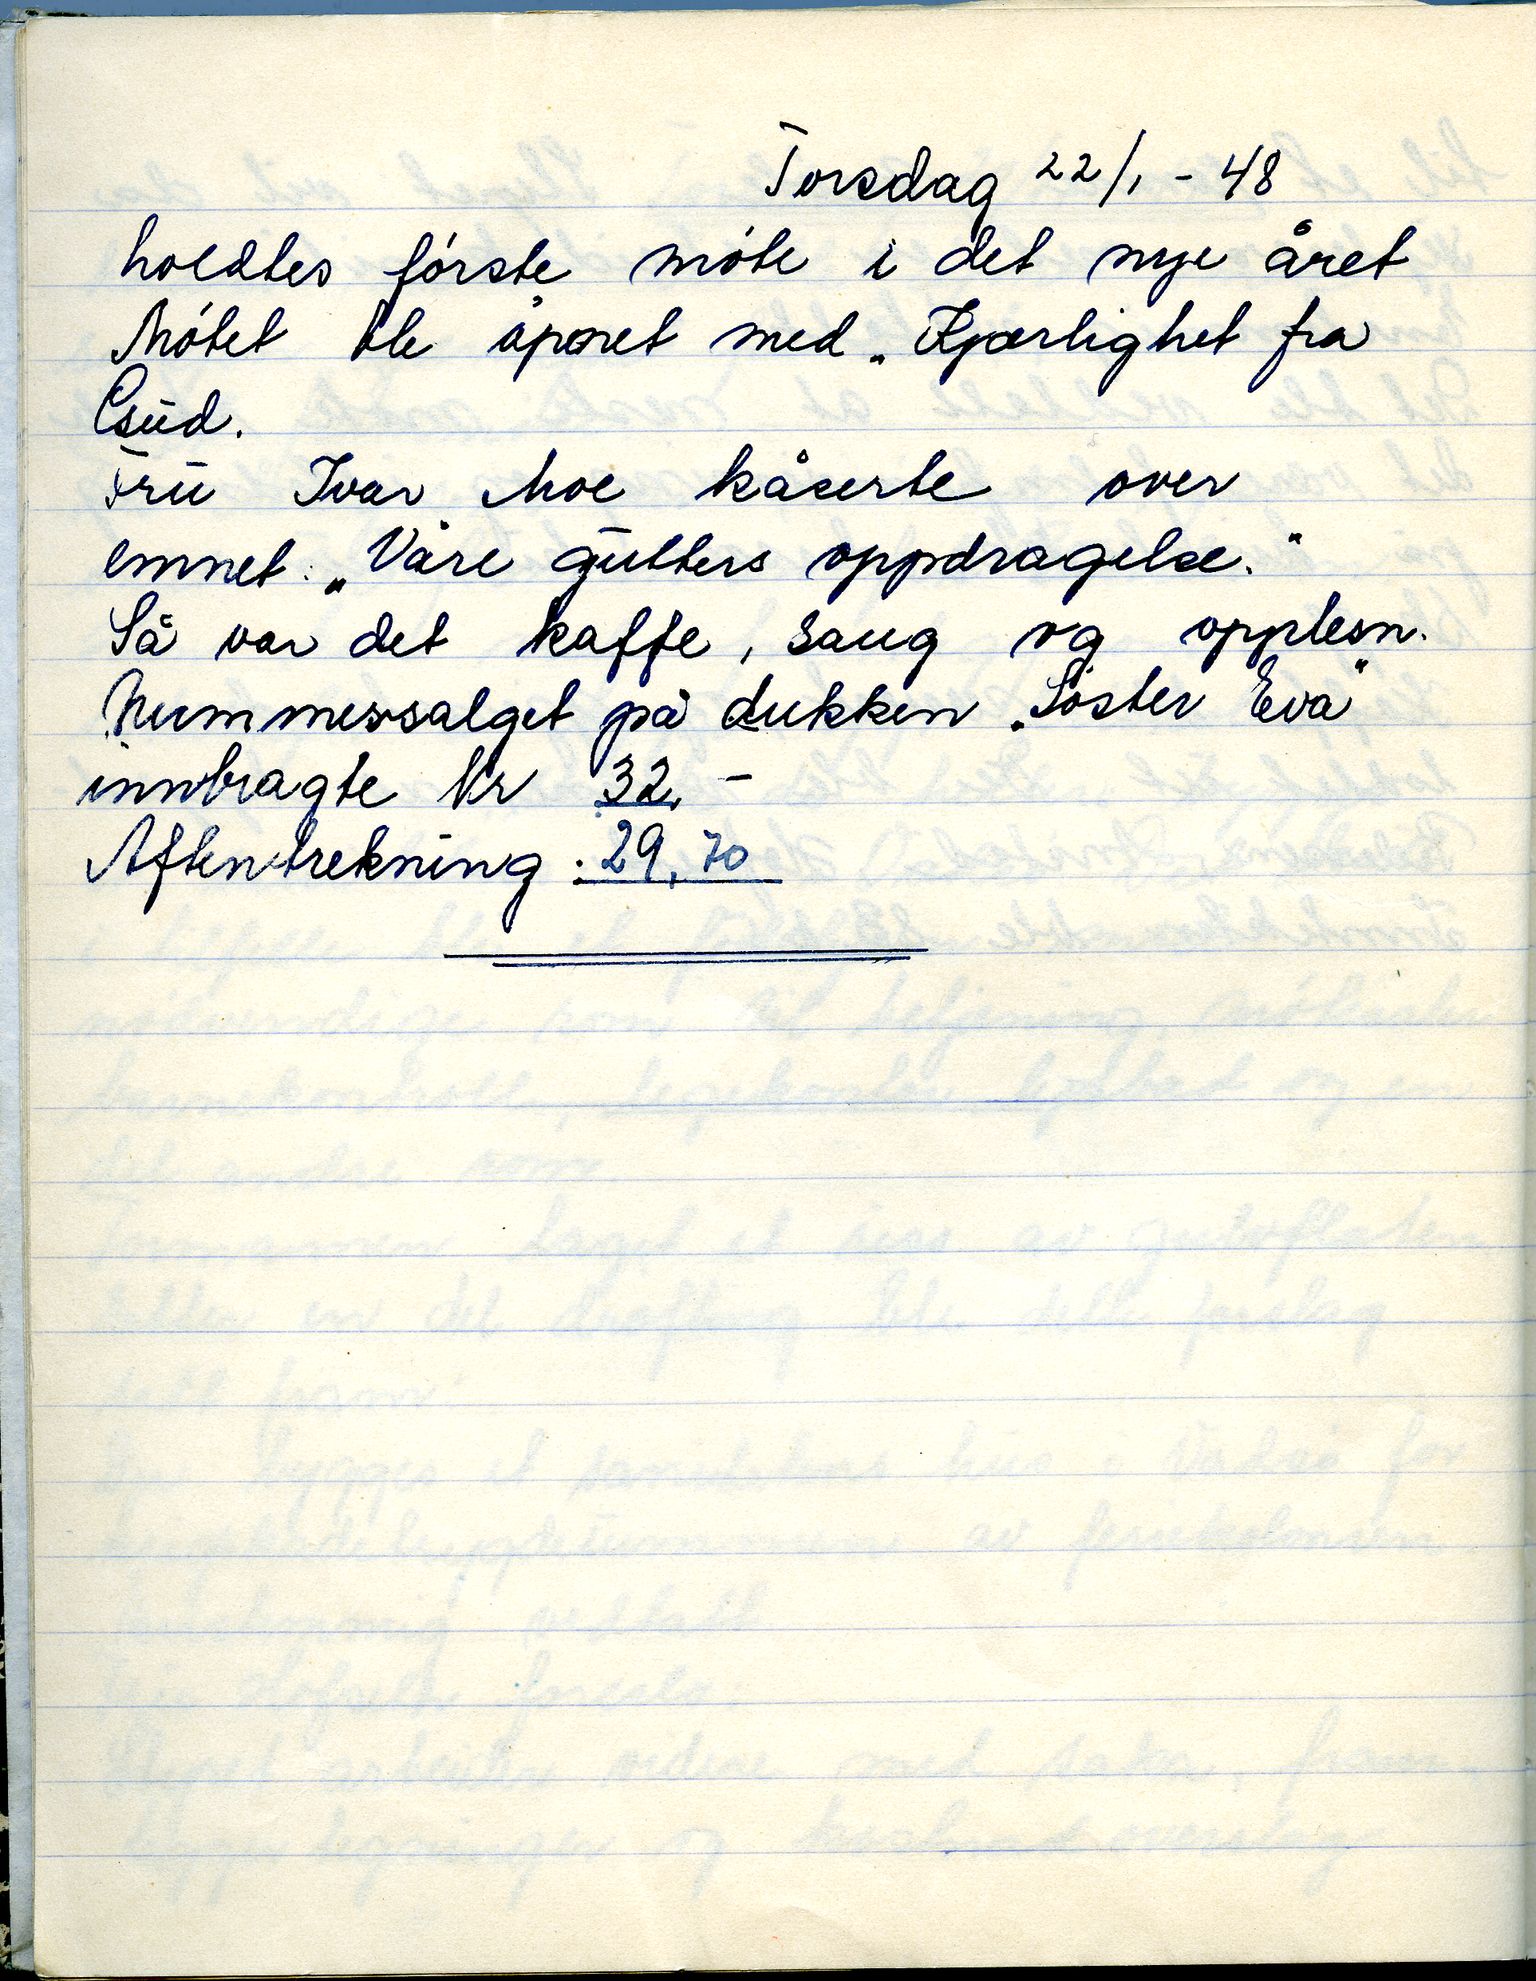 Torsdag 22/1 - 48
holdtes første møte i det nye året
Møtet ble åpnet med „Kjærlighet fra
Gud.
Fru Ivar Moe kåserte over
emnet: „Våre gutters oppdragelse."
Så var det kaffe, saug og opplesn.
Nummersalget på dukken „Søster Eva"
innbragte kr 32,-
Aftentrekning: 29,70